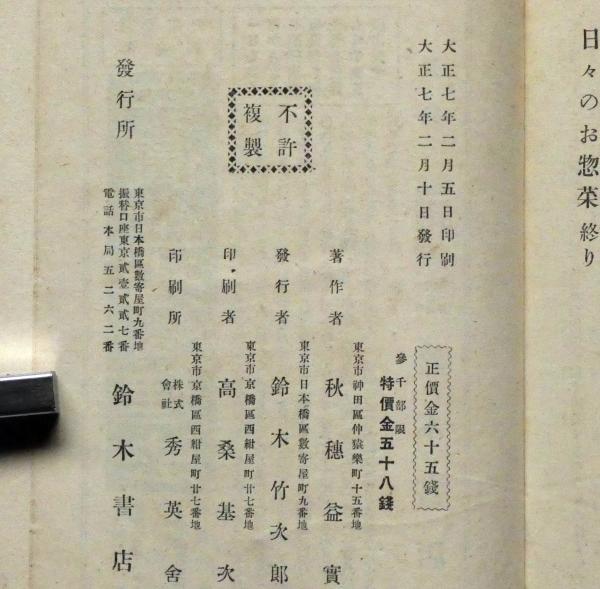 日々のお惣菜 終り
大正七年二月五日印刷
大正七年二月十日發行
正價金六十五錢
參千部限
特價金五十八錢
不許
複製
著作者
東京市神田區仲猿樂町十五番地
秋穗益實
發行者
東京市日本橋區數寄屋町九番地
鈴木竹次郎
印刷者
東京市京橋區西紺屋町廿七番地
高桑基次
印刷所
東京市京橋區西紺屋町廿七番地
株式
會社
秀英舍
發行所
東京市日本橋區數寄屋町九番地
振替口座東京貳壹貳貳七番
電話本局五二六二番
鈴木書店